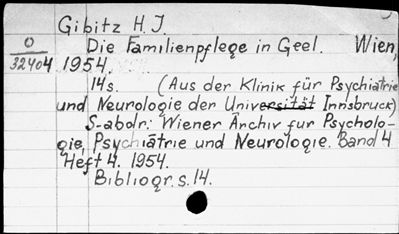 Gibitz H. J.
O
32404
Die Familienpflege in Geel. Wien,
1954.
14s. (Aus der Klinik für Psychiatrie
und Neurologie der Universität Innsbruck)
S-abdr.: Wiener Archiv fur Psycholo-
gie, Psychiatrie und Neurologie. Band 4
Heft 4. 1954.
Bibliogr. s. 14.